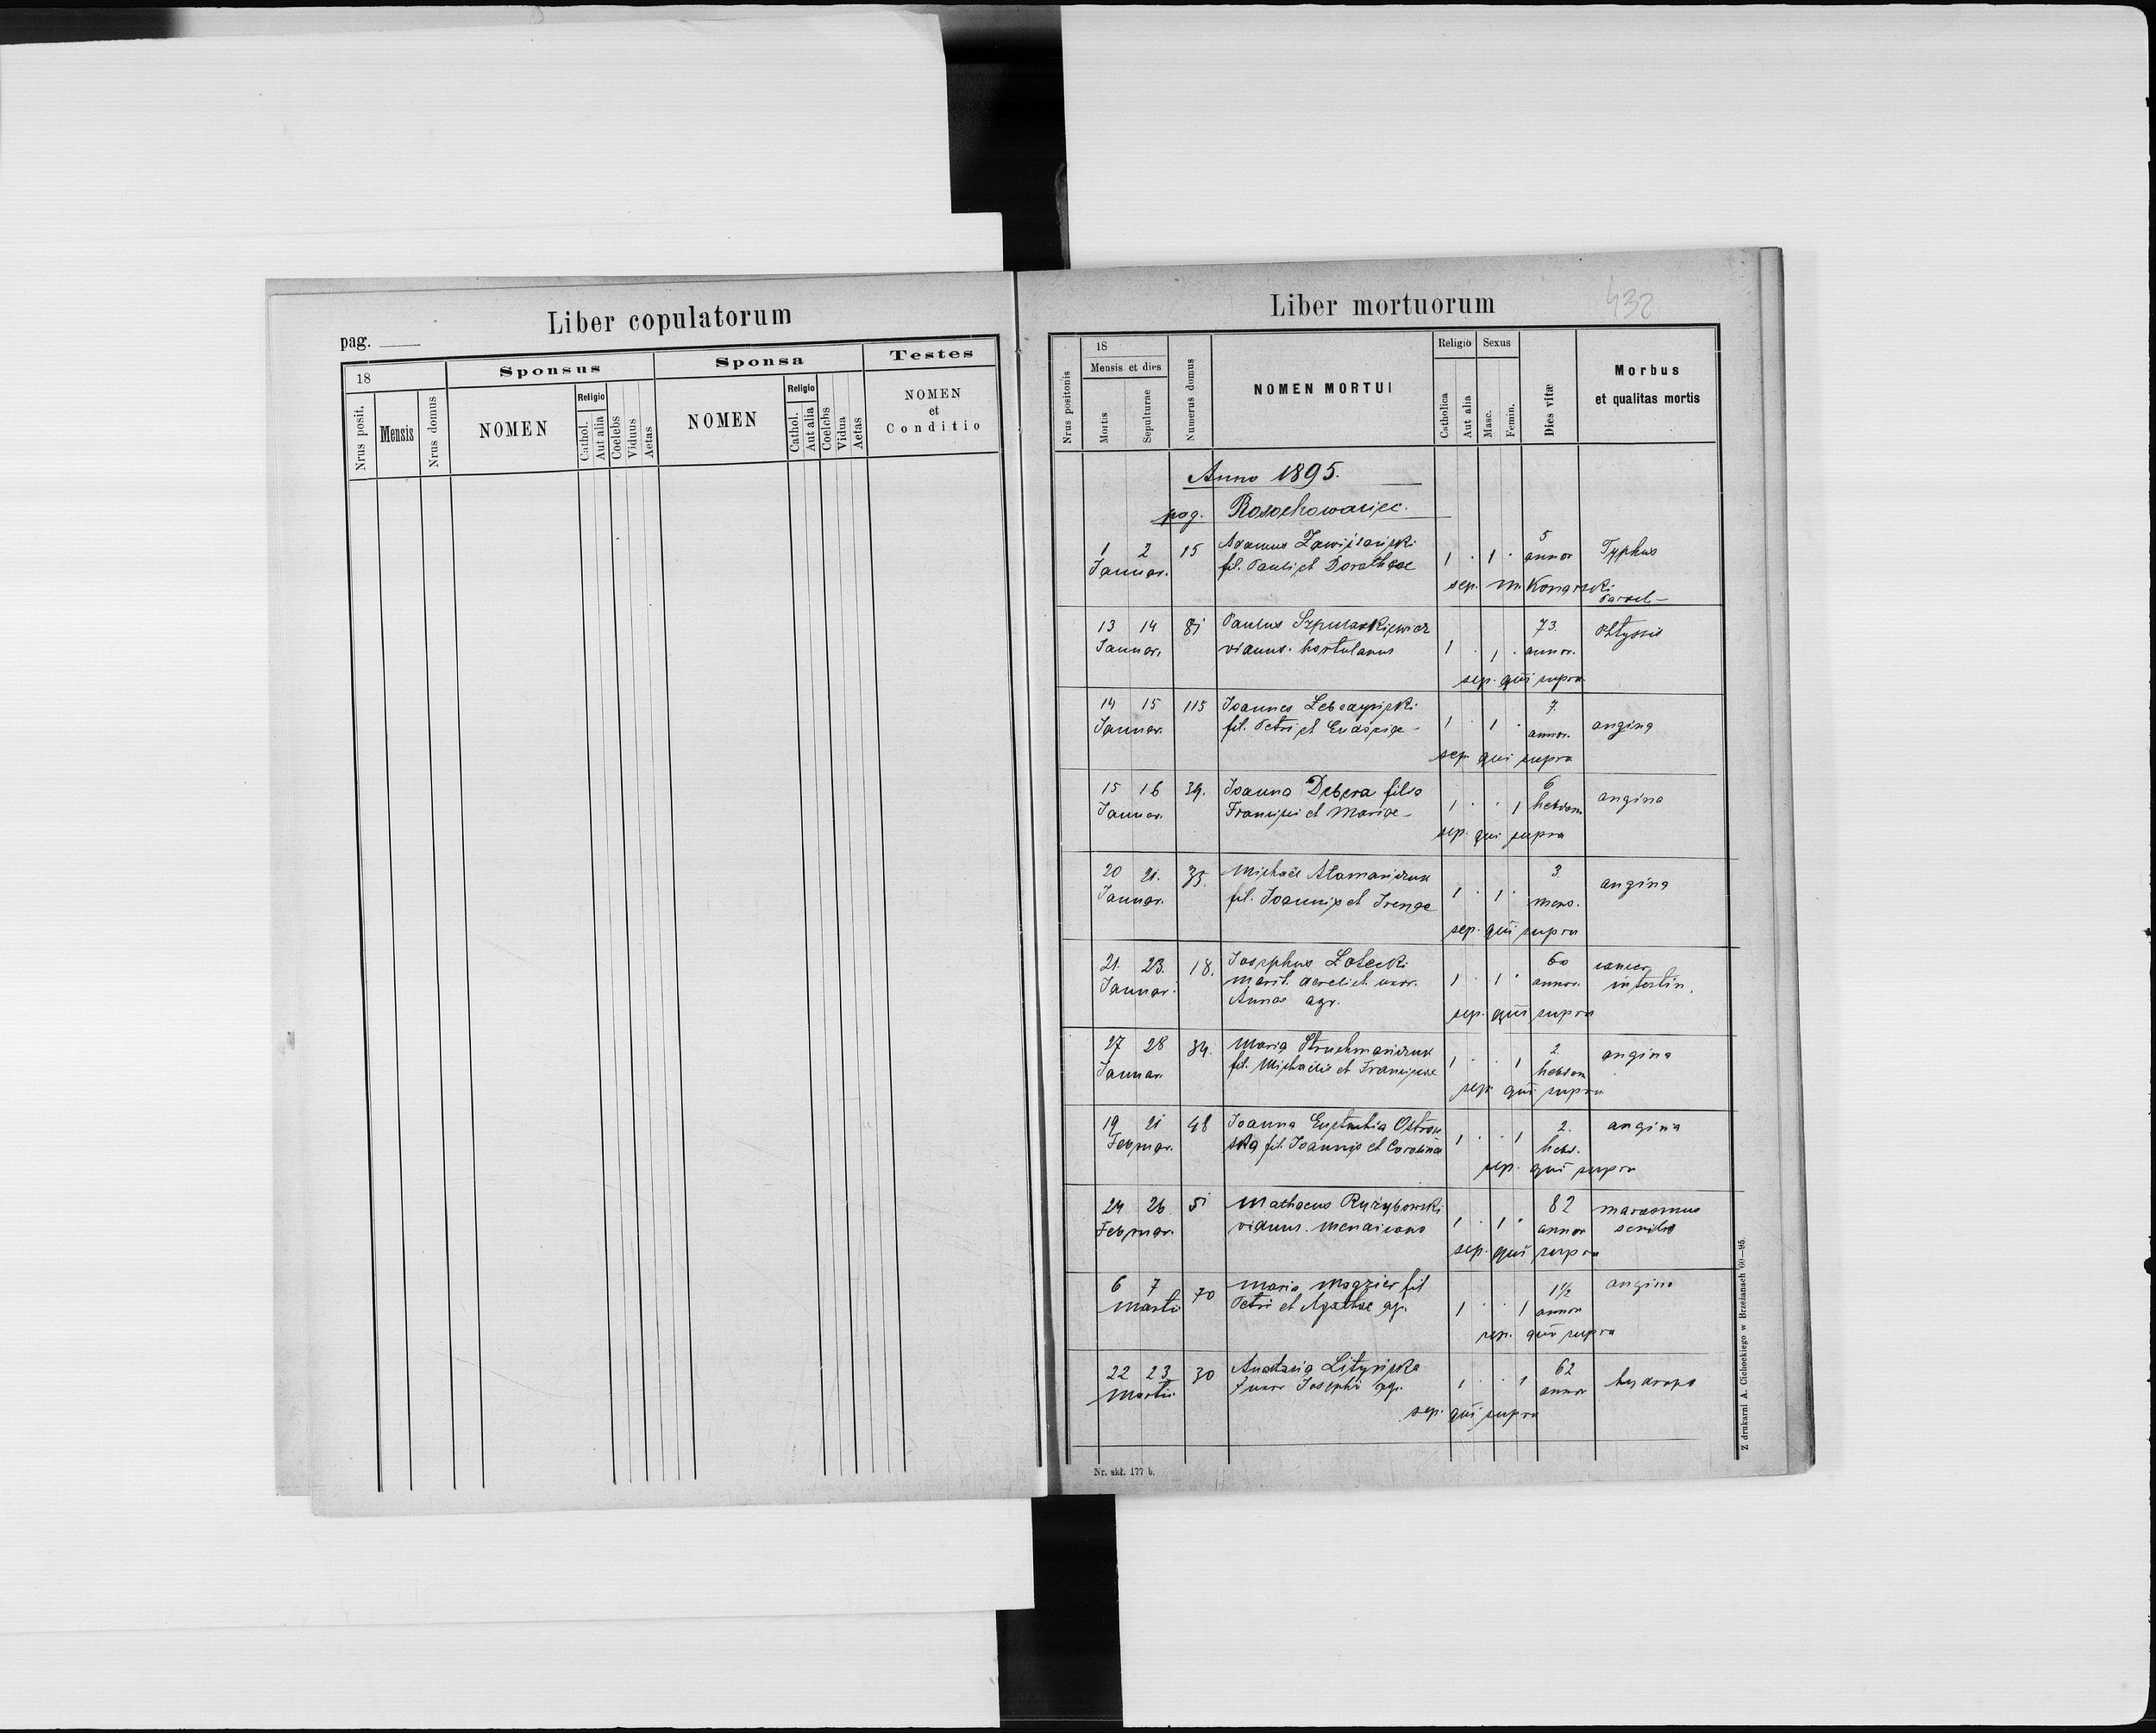 Liber copulatorum
pag.
18
Sponsus
Sponsa
Testes
Nrus posit.
Mensis
Nrus domus
NOMEN
Religio
Cathol.
Aut alia
Coelebs
Viduus
Aetas
NOMEN
Religio
Cathol.
Aut alia
Coelebs
Vidua
Aetas
NOMEN
et
Conditio
Liber mortuorum
432
Nrus positonis
18
Mensis et dies
Mortis
Sepulturae
Numerus domus
NOMEN MORTUI
Religio
Sexus
Catholica
Aut alia
Masc.
Femin.
Dies vitæ
Morbus
et qualitas mortis
Anno 1895.
pag. Rosochowaciec.
1 2 15 Adamus 1 . 1 . 5 annor Typhus
Januar. fil. Pauli et Dorotheae
sep. M. Konarski
13 14 81 Paulus 73. Phtysis
Januar. viduus. hortulanus 1 . 1 . annor.
sep. qui supra
14 15 115 Joannes 7.
Januar. fil. Petri et 1 . 1 . annor. angina
sep. qui supra
15 16 39. Joanna Debera filia 6 angina
Januar. Francisci et Mariae 1 . . 1 hebdom.
sep. qui supra
20 21. 35. Michaël Atamańczuk 3. angina
Januar. fil. Joannis et Irenae 1 . 1 . mens.
sep. qui supra
21. 23. 18. Josephus 60 cancer
Januar. marit. derelict. uxor. 1 . 1 . annor. intestin.
Annae agr.
sep. qui supra
27 28 34. Maria 2. angina
Januar. fil. Michaëlis et Franciscae 1 . . 1 hebdom
sep. qui supra
19 21 48 Joanna 2. angina
Februar. fil. Joannis et Carolinae 1 . . 1 hebd.
sep. qui supra
24 26 51 Mathaeus 82 marasmus
Februar. viduus. 1 . 1 . annor senilis
sep. qui supra
6 7 70 Maria fil 1½ angina
Martii Petri et Agathae agr. 1 . . 1 annor
sep. qui supra
22 23 30 Anastasia 62 hydrops
Martii uxor Josephi agr. 1 . . 1 annor
sep. qui supra
Nr. skł. 177 b.
Z drukarni A. Cichockiego w Brzeżanach 60—95.